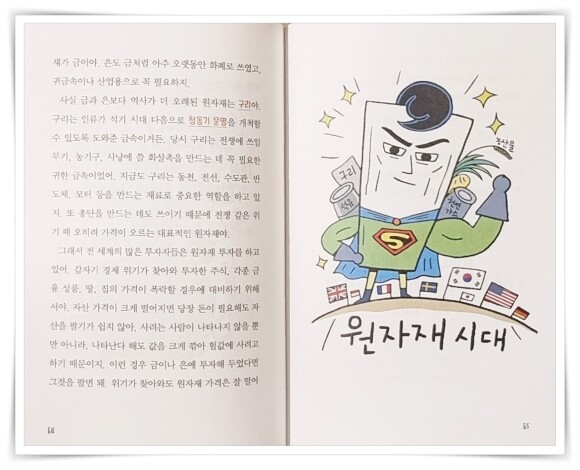 재가 금이야. 은도 금처럼 아주 오랫동안 화폐로 쓰였고,
귀금속이나 산업용으로 꼭 필요하지.
사실 금과 은보다 역사가 더 오래된 원자재는 구리야.
구리는 인류가 석기 시대 다음으로 청동기 문명을 개척할
수 있도록 도와준 금속이거든. 당시 구리는 전쟁에 쓰일
무기, 농기구, 사냥에 쓸 화살촉을 만드는 데 꼭 필요한
귀한 금속이었어. 지금도 구리는 동전, 전선, 수도관, 반
도체, 모터 등을 만드는 재료로 중요한 역할을 하고 있
지. 또 총탄을 만드는 데도 쓰이기 때문에 전쟁 같은 위
기 때 오히려 가격이 오르는 대표적인 원자재야.
그래서 전 세계의 많은 투자자들은 원자재 투자를 하고
있어. 갑자기 경제 위기가 찾아와 투자한 주식, 각종 금
융 상품, 땅, 집의 가격이 폭락할 경우에 대비하기 위해
서야. 자산 가격이 크게 떨어지면 당장 돈이 필요해도 자
산을 팔기가 쉽지 않아. 사려는 사람이 나타나지 않을 뿐
만 아니라, 나타난다 해도 값을 크게 깎아 헐값에 사려고
하기 때문이지. 이런 경우 금이나 은에 투자해 두었다면
그것을 팔면 돼. 위기가 찾아와도 원자재 가격은 잘 떨어
64
농산물
구리
석유
천연
가스
S
원자재 시대
65